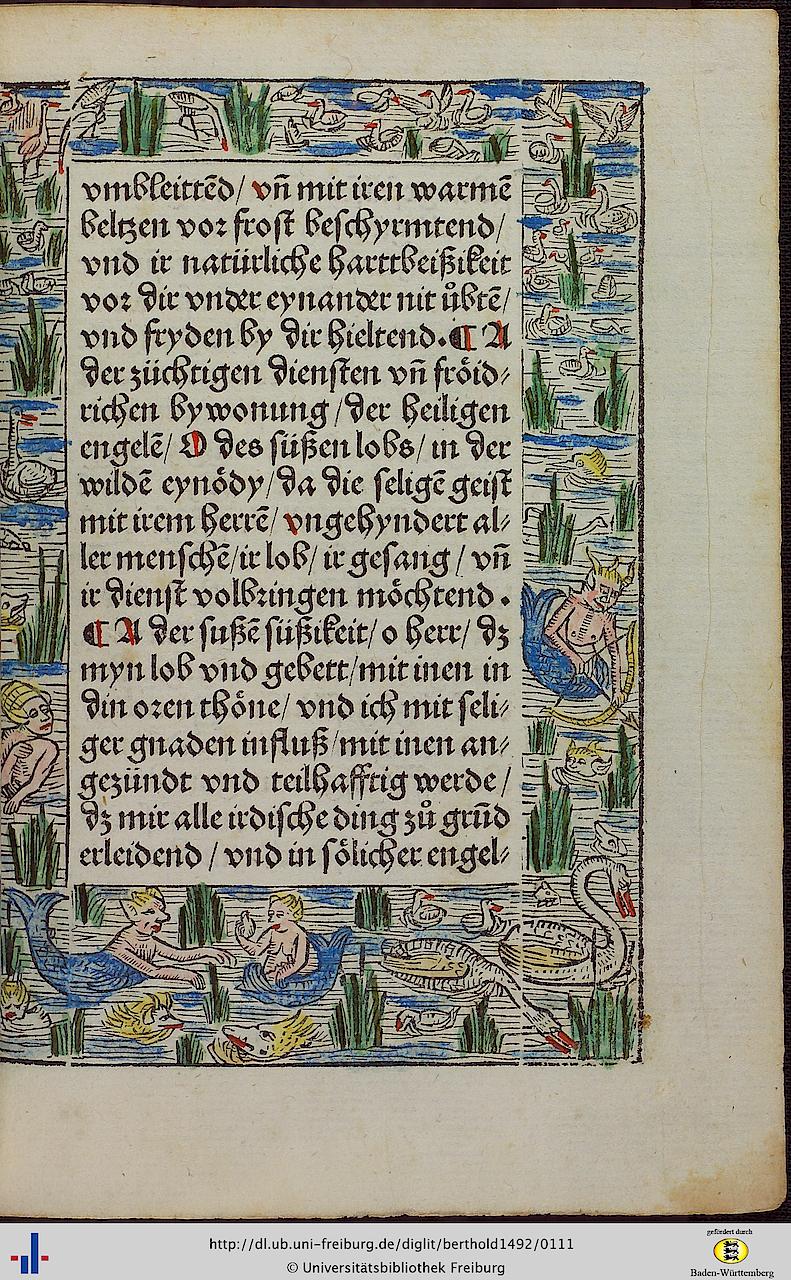 vmbleittēd/ vn̄ mit iren warmē
beltzen vor frost beschyrmtend/
vnd ir natürliche harttbeißikeit
vor dir vnder eynander nit uͦbtē/
vnd fryden by dir hieltend. ¶ A
der züchtigen diensten vn̄ froͤid⸗
richen bywonung /der heiligen
engelē/ O des süßen lobs/ in der
wildē eynoͤdy/ da die seligē geist
mit irem herrē/ vngehyndert al⸗
ler menschē/ir lob/ ir gesang / vn̄
ir dienst volbringen moͤchtend .
¶ A der sußē süßikeit/ o herr/ dz
myn lob vnd gebett/mit inen in
din oren thoͤne/ vnd ich mit seli⸗
ger gnaden influß/mit inen an⸗
gezündt vnd teilhafftig werde /
dz mir alle irdische ding zuͦ grūd
erleidend / vnd in soͤlicher engel⸗
http://dl.ub.uni-freiburg.de/diglit/berthold1492/0111
© Universitätsbibliothek Freiburg
gefördert durch
Baden-Württemberg